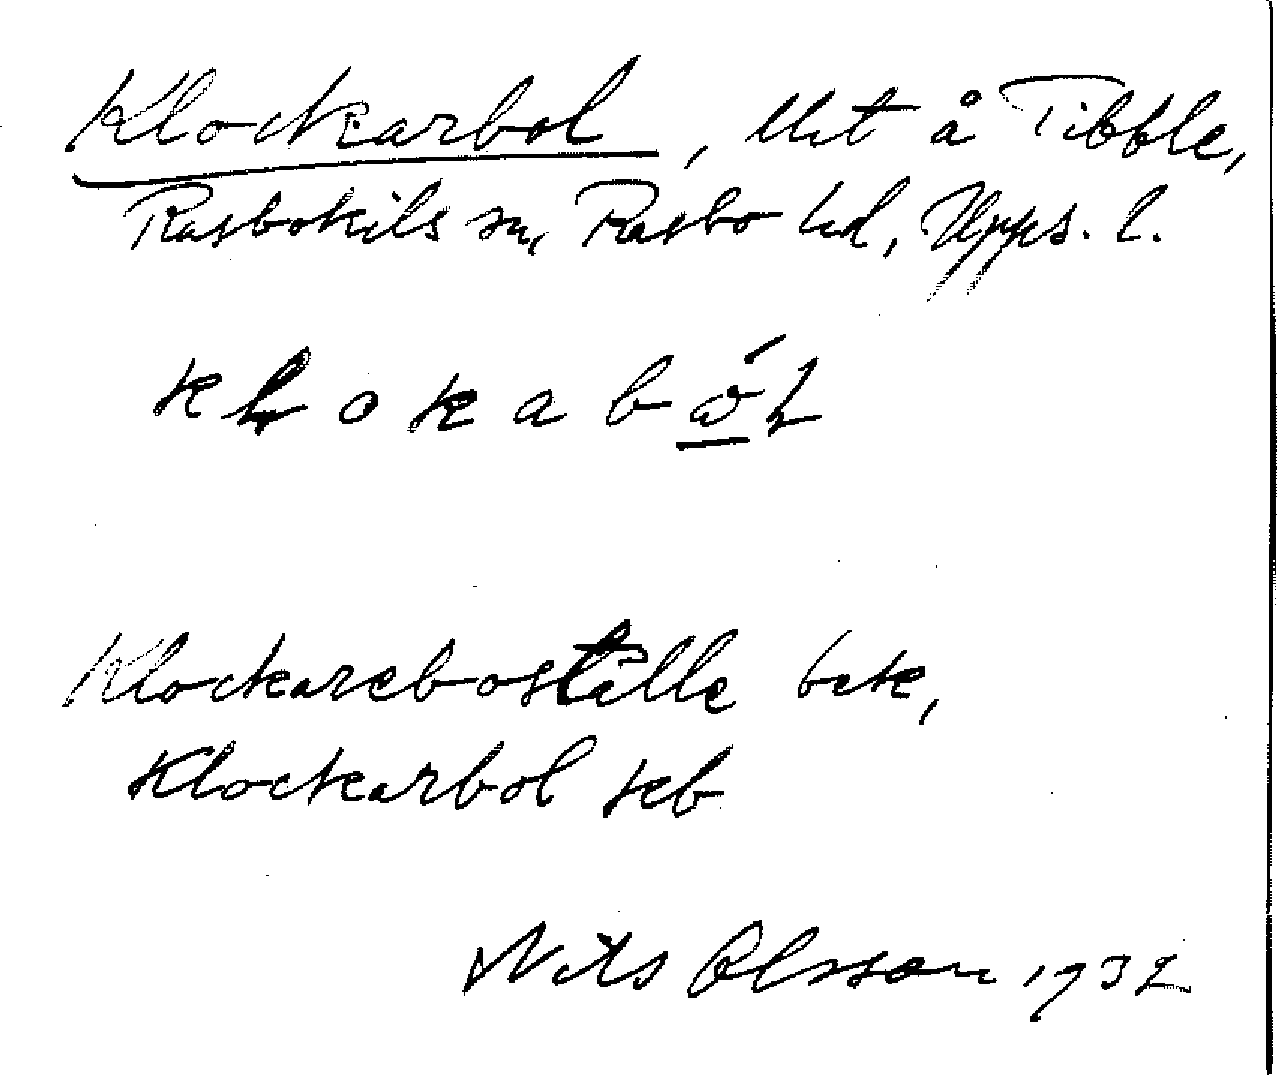 Klockarbol, Ut å Tibble,
Rasbokils sn, Rasbo hd, Upps. l.
kḷokabo̱̒ḷ
Klockareboställe bek,
Klockarbol jeb
Nils Olsson 1932